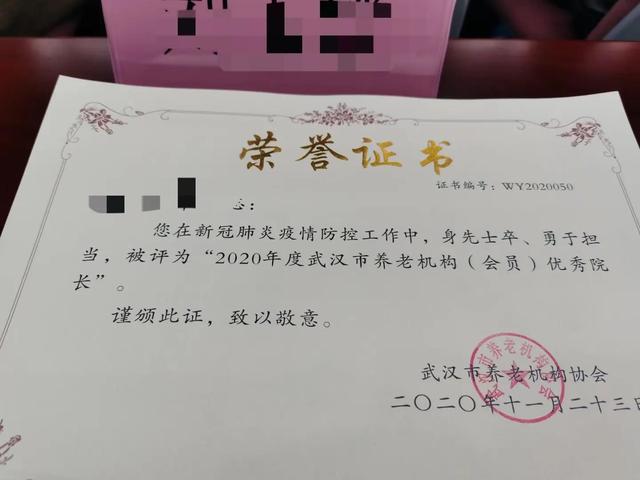 荣誉证书
证书编号：WY2020050
：
您在新冠肺炎疫情防控工作中，身先士卒、勇于担
当，被评为“2020年度武汉市养老机构（会员）优秀院
长”。
谨颁此证，致以敬意。
武汉市养老机构协会
二〇二〇年十一月二十三日
武汉市养老机构协会